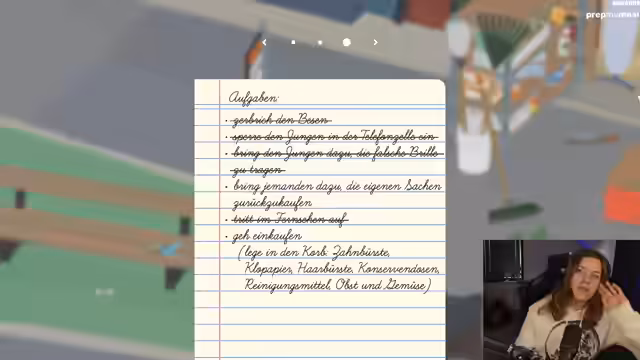 Aufgaben:
· zerbrich den Besen
· sperre den Jungen in der Telefonzelle ein
· bring den Jungen dazu, die falsche Brille
zu tragen
· bring jemanden dazu, die eigenen Sachen
zurückzukaufen
· tritt im Fernsehen auf
· geh einkaufen
(lege in den Korb: Zahnbürste,
Klopapier, Haarbürste, Konservendosen,
Reinigungsmittel, Obst und Gemüse)